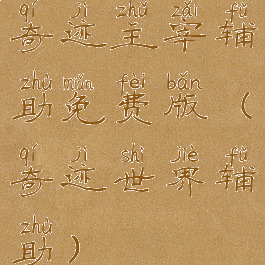 qí jì zhǔ zǎi fǔ
奇迹主宰辅
zhù miǎn fèi bǎn
助免费版（
qí jì shì jiè fǔ
奇迹世界辅
zhù
助）